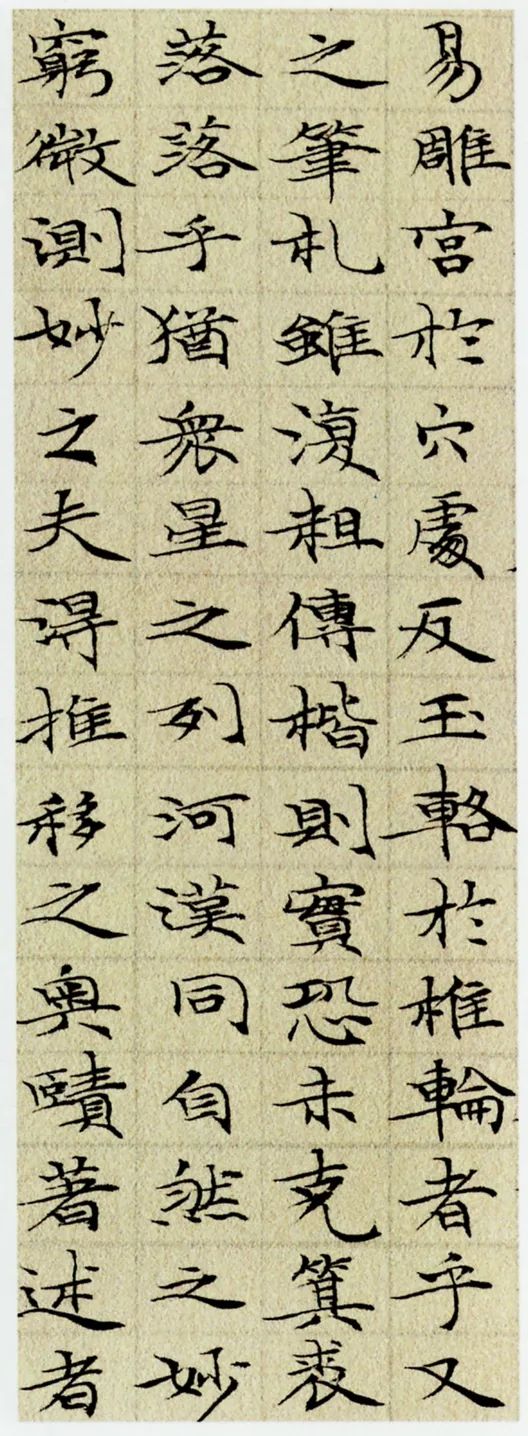 易雕宮於穴處反玉輅於椎輪者乎又
之筆札雖復粗傳楷則實恐未克箕裘
落落乎猶衆星之列河漢同自然之妙
窮微測妙之夫得推移之奥賾著述者